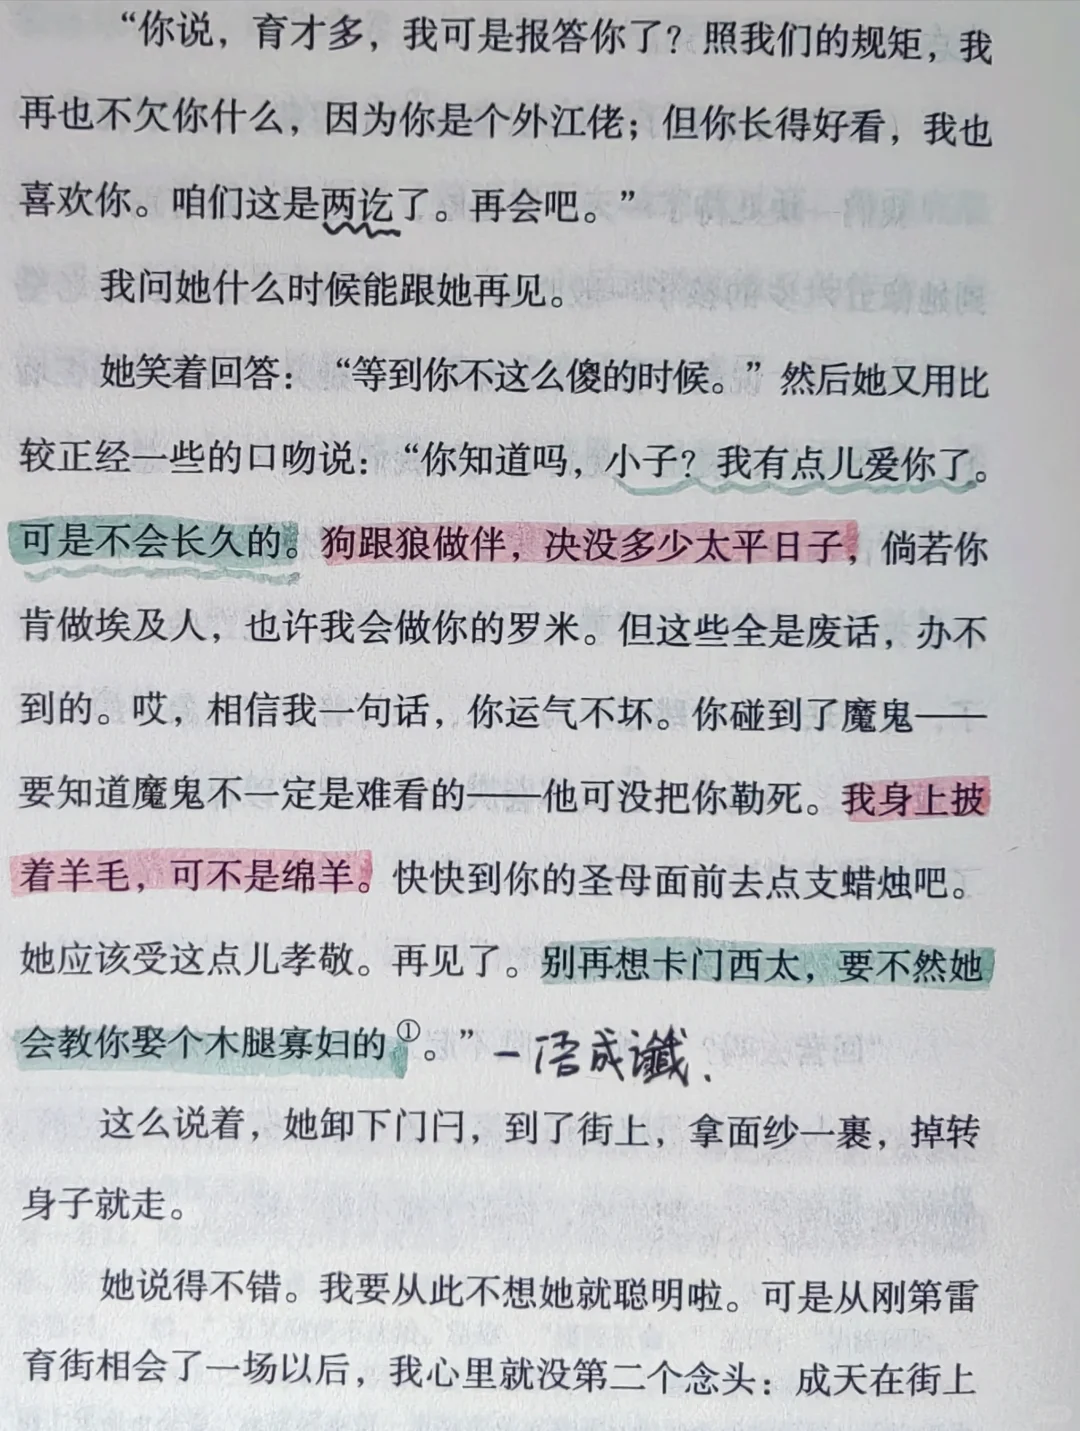 “你说，育才多，我可是报答你了？照我们的规矩，我
再也不欠你什么，因为你是个外江佬；但你长得好看，我也
喜欢你。咱们这是两讫了。再会吧。”
我问她什么时候能跟她再见。
她笑着回答：“等到你不这么傻的时候。”然后她又用比
较正经一些的口吻说：“你知道吗，小子？我有点儿爱你了。
可是不会长久的。狗跟狼做伴，决没多少太平日子，倘若你
肯做埃及人，也许我会做你的罗米。但这些全是废话，办不
到的。哎，相信我一句话，你运气不坏。你碰到了魔鬼——
要知道魔鬼不一定是难看的——他可没把你勒死。我身上披
着羊毛，可不是绵羊。快快到你的圣母面前去点支蜡烛吧。
她应该受这点儿孝敬。再见了。别再想卡门西太，要不然她
会教你娶个木腿寡妇的①。” 一语成谶.
这么说着，她卸下门闩，到了街上，拿面纱一裹，掉转
身子就走。
她说得不错。我要从此不想她就聪明啦。可是从刚第雷
育街相会了一场以后，我心里就没第二个念头：成天在街上